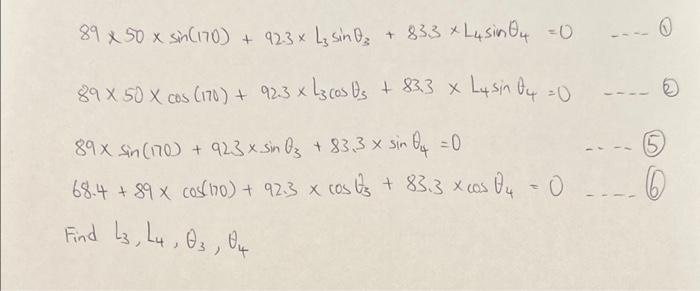 89 x 50 x sin(170) + 92.3 x L3 sinθ3 + 83.3 x L4 sinθ4 = 0 ---- ①
89 x 50 x cos(170) + 92.3 x L3 cosθ3 + 83.3 x L4 sinθ4 = 0 ---- ②
89 x sin(170) + 92.3 x sinθ3 + 83.3 x sinθ4 = 0 ---- ⑤
68.4 + 89 x cos(170) + 92.3 x cosθ3 + 83.3 x cosθ4 = 0 ---- ⑥
Find L3, L4, θ3, θ4